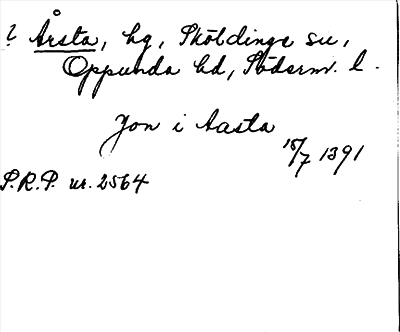 ? Årsta, hg, Sköldinge sn,
Oppunda hd, Söderm. l.
Jon i Aasta
15/7 1391
S.R.P. nr. 2564